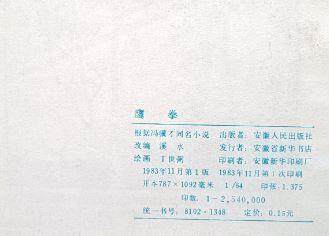 鹰 拳
根据冯骥才同名小说 出版者：安徽人民出版社
改编 溪 水 发行者：安徽省新华书店
绘画 丁世弼 印刷者：安徽新华印刷厂
1983年11月第1版 1983年11月第1次印刷
开本787×1092毫米 1/64 印张：1.375
印数：1—2,540,000
统一书号：8102·1348 定价：0.15元